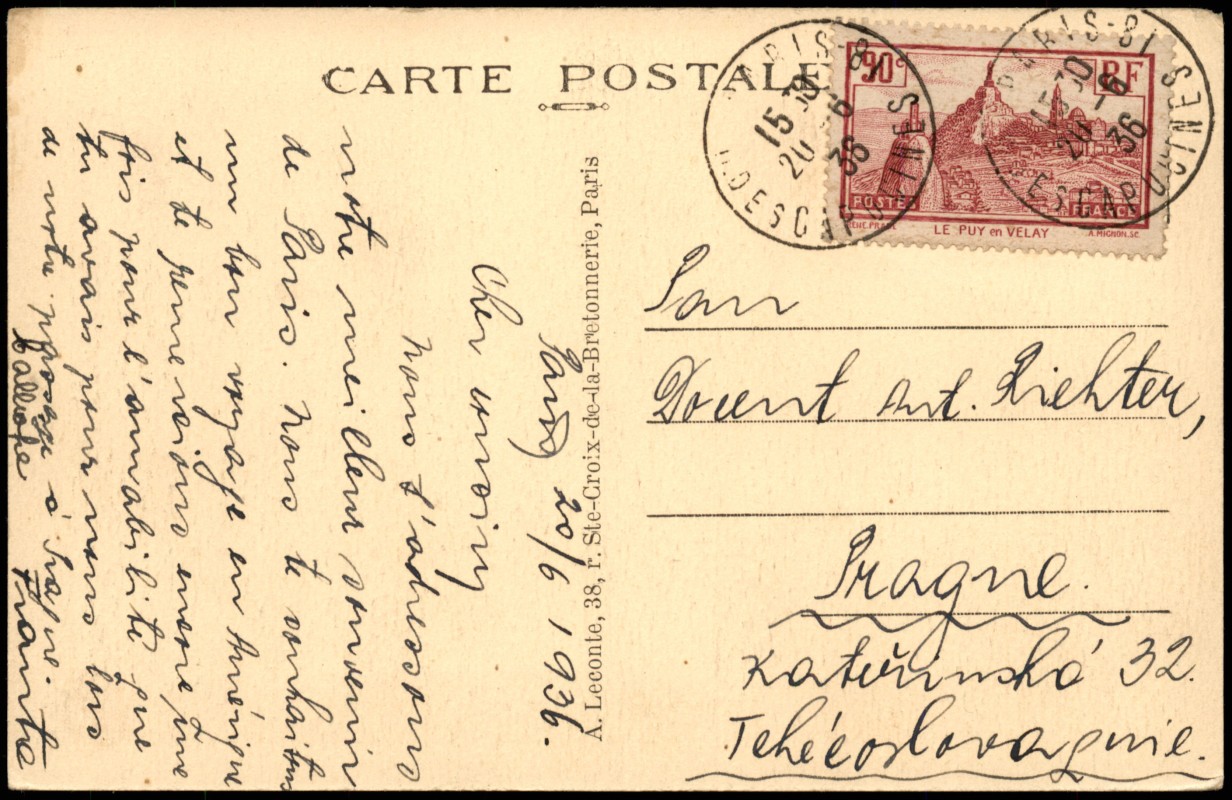 CARTE POSTALE
PARIS-81
15 30
20-6
36
R.DESCAPUCINES
PARIS-81
15 30
20-6
36
R.DESCAPUCINES
90c
RF
POSTES
FRANCE
LE PUY en VELAY
A.MIGNON.SC
Pan
Docent Ant. Richter,
Prague.
Kateřinská 32.
Tchécoslovaquie.
A. Leconte, 38, r. Ste-Croix-de-la-Bretonnerie, Paris
Paris 20/6 1936.
Cher cousin
nous t'adressons
notre meilleur souvenir
de Paris. Nous te souhaitons
un bon voyage en Amérique
et te remercions encore une
fois pour l'amabilité que
tu avais pour nous lors
de notre passage à Prague